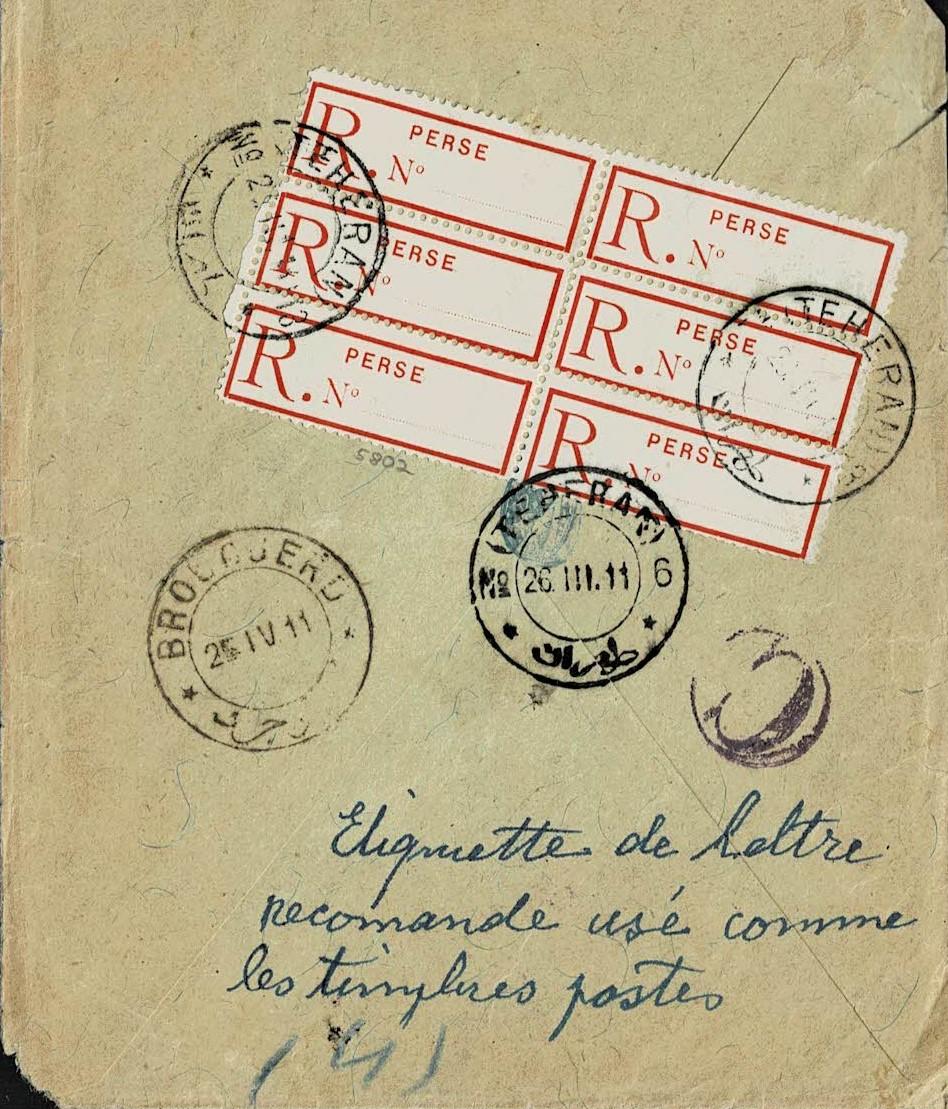 R. PERSE
Nº
R. PERSE
Nº
R. PERSE
Nº
R. PERSE
Nº
R. PERSE
Nº
R. PERSE
Nº
TEHERAN
Nº 2
TEHERAN
طهران
5802
(TEHERAN)
Nº 26.III.11 6
طهران
BROUDJERD
25 IV 11
3
Etiquette de Lettre
recomande usé comme
les timbres postes
(4)